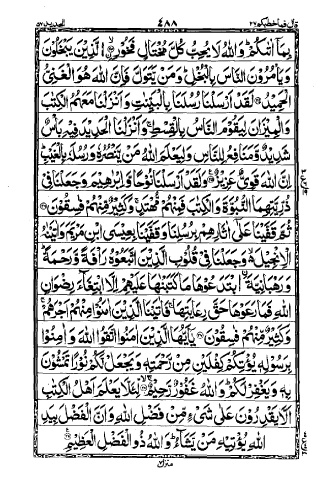 قال فما خطبكم ٢٧ ٤٨٨ الحديد ٥٧
بِمَاۤ اٰتٰىكُمْ ؕ وَاللّٰهُ لَا يُحِبُّ كُلَّ مُخْتَالٍ فَخُوْرِۙ ۟ الَّذِيْنَ يَبْخَلُوْنَ
وَيَاْمُرُوْنَ النَّاسَ بِالْبُخْلِ ؕ وَمَنْ يَّتَوَلَّ فَاِنَّ اللّٰهَ هُوَ الْغَنِيُّ
الْحَمِيْدُ ۟ لَقَدْ اَرْسَلْنَا رُسُلَنَا بِالْبَيِّنٰتِ وَاَنْزَلْنَا مَعَهُمُ الْكِتٰبَ
وَالْمِيْزَانَ لِيَقُوْمَ النَّاسُ بِالْقِسْطِ ۚ وَاَنْزَلْنَا الْحَدِيْدَ فِيْهِ بَاْسٌ
شَدِيْدٌ وَّمَنَافِعُ لِلنَّاسِ وَلِيَعْلَمَ اللّٰهُ مَنْ يَّنْصُرُهٗ وَرُسُلَهٗ بِالْغَيْبِ ؕ
اِنَّ اللّٰهَ قَوِيٌّ عَزِيْزٌ ۟ وَلَقَدْ اَرْسَلْنَا نُوْحًا وَّاِبْرٰهِيْمَ وَجَعَلْنَا فِيْ
ذُرِّيَّتِهِمَا النُّبُوَّةَ وَالْكِتٰبَ فَمِنْهُمْ مُّهْتَدٍ ۚ وَكَثِيْرٌ مِّنْهُمْ فٰسِقُوْنَ ۟
ثُمَّ قَفَّيْنَا عَلٰۤى اٰثَارِهِمْ بِرُسُلِنَا وَقَفَّيْنَا بِعِيْسَى ابْنِ مَرْيَمَ وَاٰتَيْنٰهُ
الْاِنْجِيْلَ ۙ۬ وَجَعَلْنَا فِيْ قُلُوْبِ الَّذِيْنَ اتَّبَعُوْهُ رَاْفَةً وَّرَحْمَةً ؕ
وَرَهْبَانِيَّةَ ۨابْتَدَعُوْهَا مَا كَتَبْنٰهَا عَلَيْهِمْ اِلَّا ابْتِغَآءَ رِضْوَانِ
اللّٰهِ فَمَا رَعَوْهَا حَقَّ رِعَايَتِهَا ۚ فَاٰتَيْنَا الَّذِيْنَ اٰمَنُوْا مِنْهُمْ اَجْرَهُمْ ۚ
وَكَثِيْرٌ مِّنْهُمْ فٰسِقُوْنَ ۟ يٰۤاَيُّهَا الَّذِيْنَ اٰمَنُوا اتَّقُوا اللّٰهَ وَاٰمِنُوْا
بِرَسُوْلِهٖ يُؤْتِكُمْ كِفْلَيْنِ مِنْ رَّحْمَتِهٖ وَيَجْعَلْ لَّكُمْ نُوْرًا تَمْشُوْنَ
بِهٖ وَيَغْفِرْ لَكُمْ ؕ وَاللّٰهُ غَفُوْرٌ رَّحِيْمٌ ۟ۙ لِّئَلَّا يَعْلَمَ اَهْلُ الْكِتٰبِ
اَلَّا يَقْدِرُوْنَ عَلٰى شَيْءٍ مِّنْ فَضْلِ اللّٰهِ وَاَنَّ الْفَضْلَ بِيَدِ
اللّٰهِ يُؤْتِيْهِ مَنْ يَّشَآءُ ؕ وَاللّٰهُ ذُو الْفَضْلِ الْعَظِيْمِ ۟
منزل